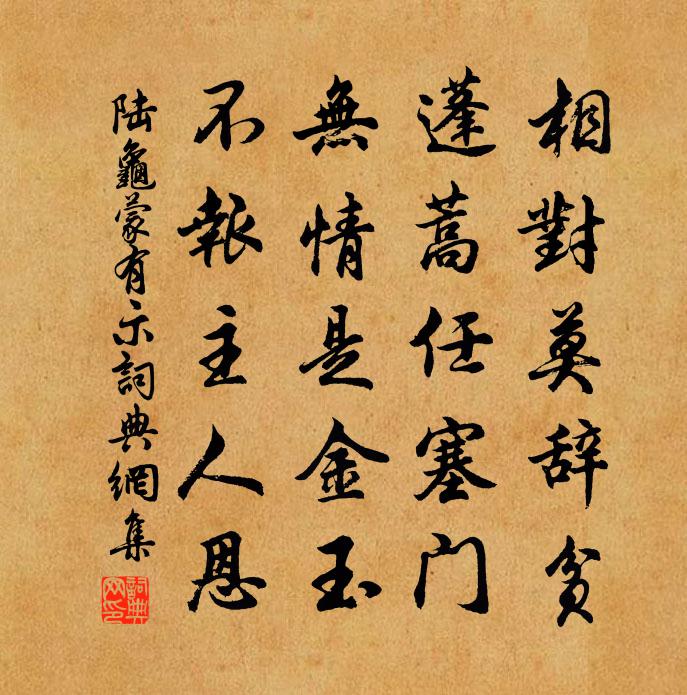 相對莫辞貧
蓬蒿任塞門
無情是金玉
不報主人恩
陆龜蒙有示詞典網集
詞典网印